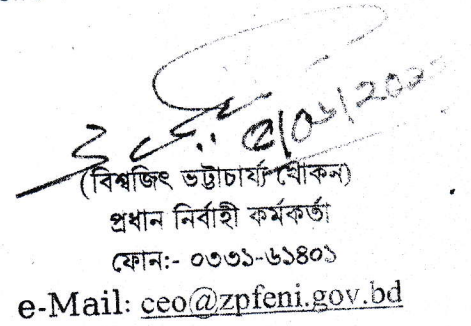 (বিশ্বজিৎ ভট্টাচার্য্য খোকন)
প্রধান নির্বাহী কর্মকর্তা
ফোন:- ০৩৩১-৬১৪০১
e-Mail: ceo@zpfeni.gov.bd